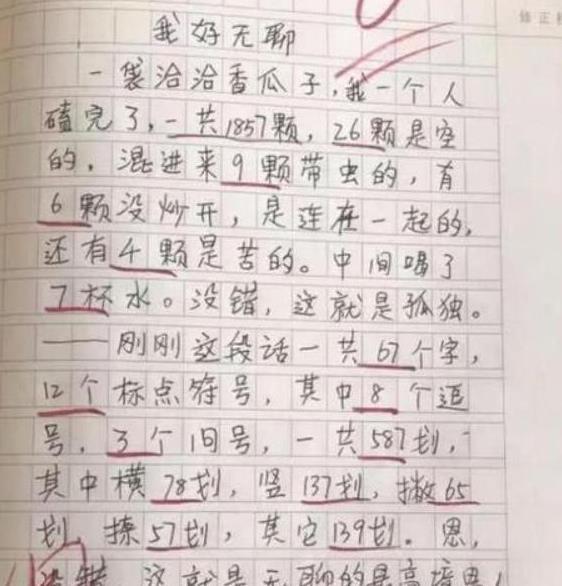 修正
我好无聊
一袋洽洽香瓜子,我一个人
磕完了,一共1857颗,26颗是空
的,混进来9颗带虫的,有
6颗没炒开,是连在一起的,
还有4颗是苦的。中间喝了
7杯水。没错,这就是孤独。
——刚刚这段话一共67个字,
12个标点符号,其中8个逗
号,3个句号,一共587划,
其中横78划,竖137划,撇65
划,捺57划,其它139划。恩,
没错,这就是无聊的最高境界!